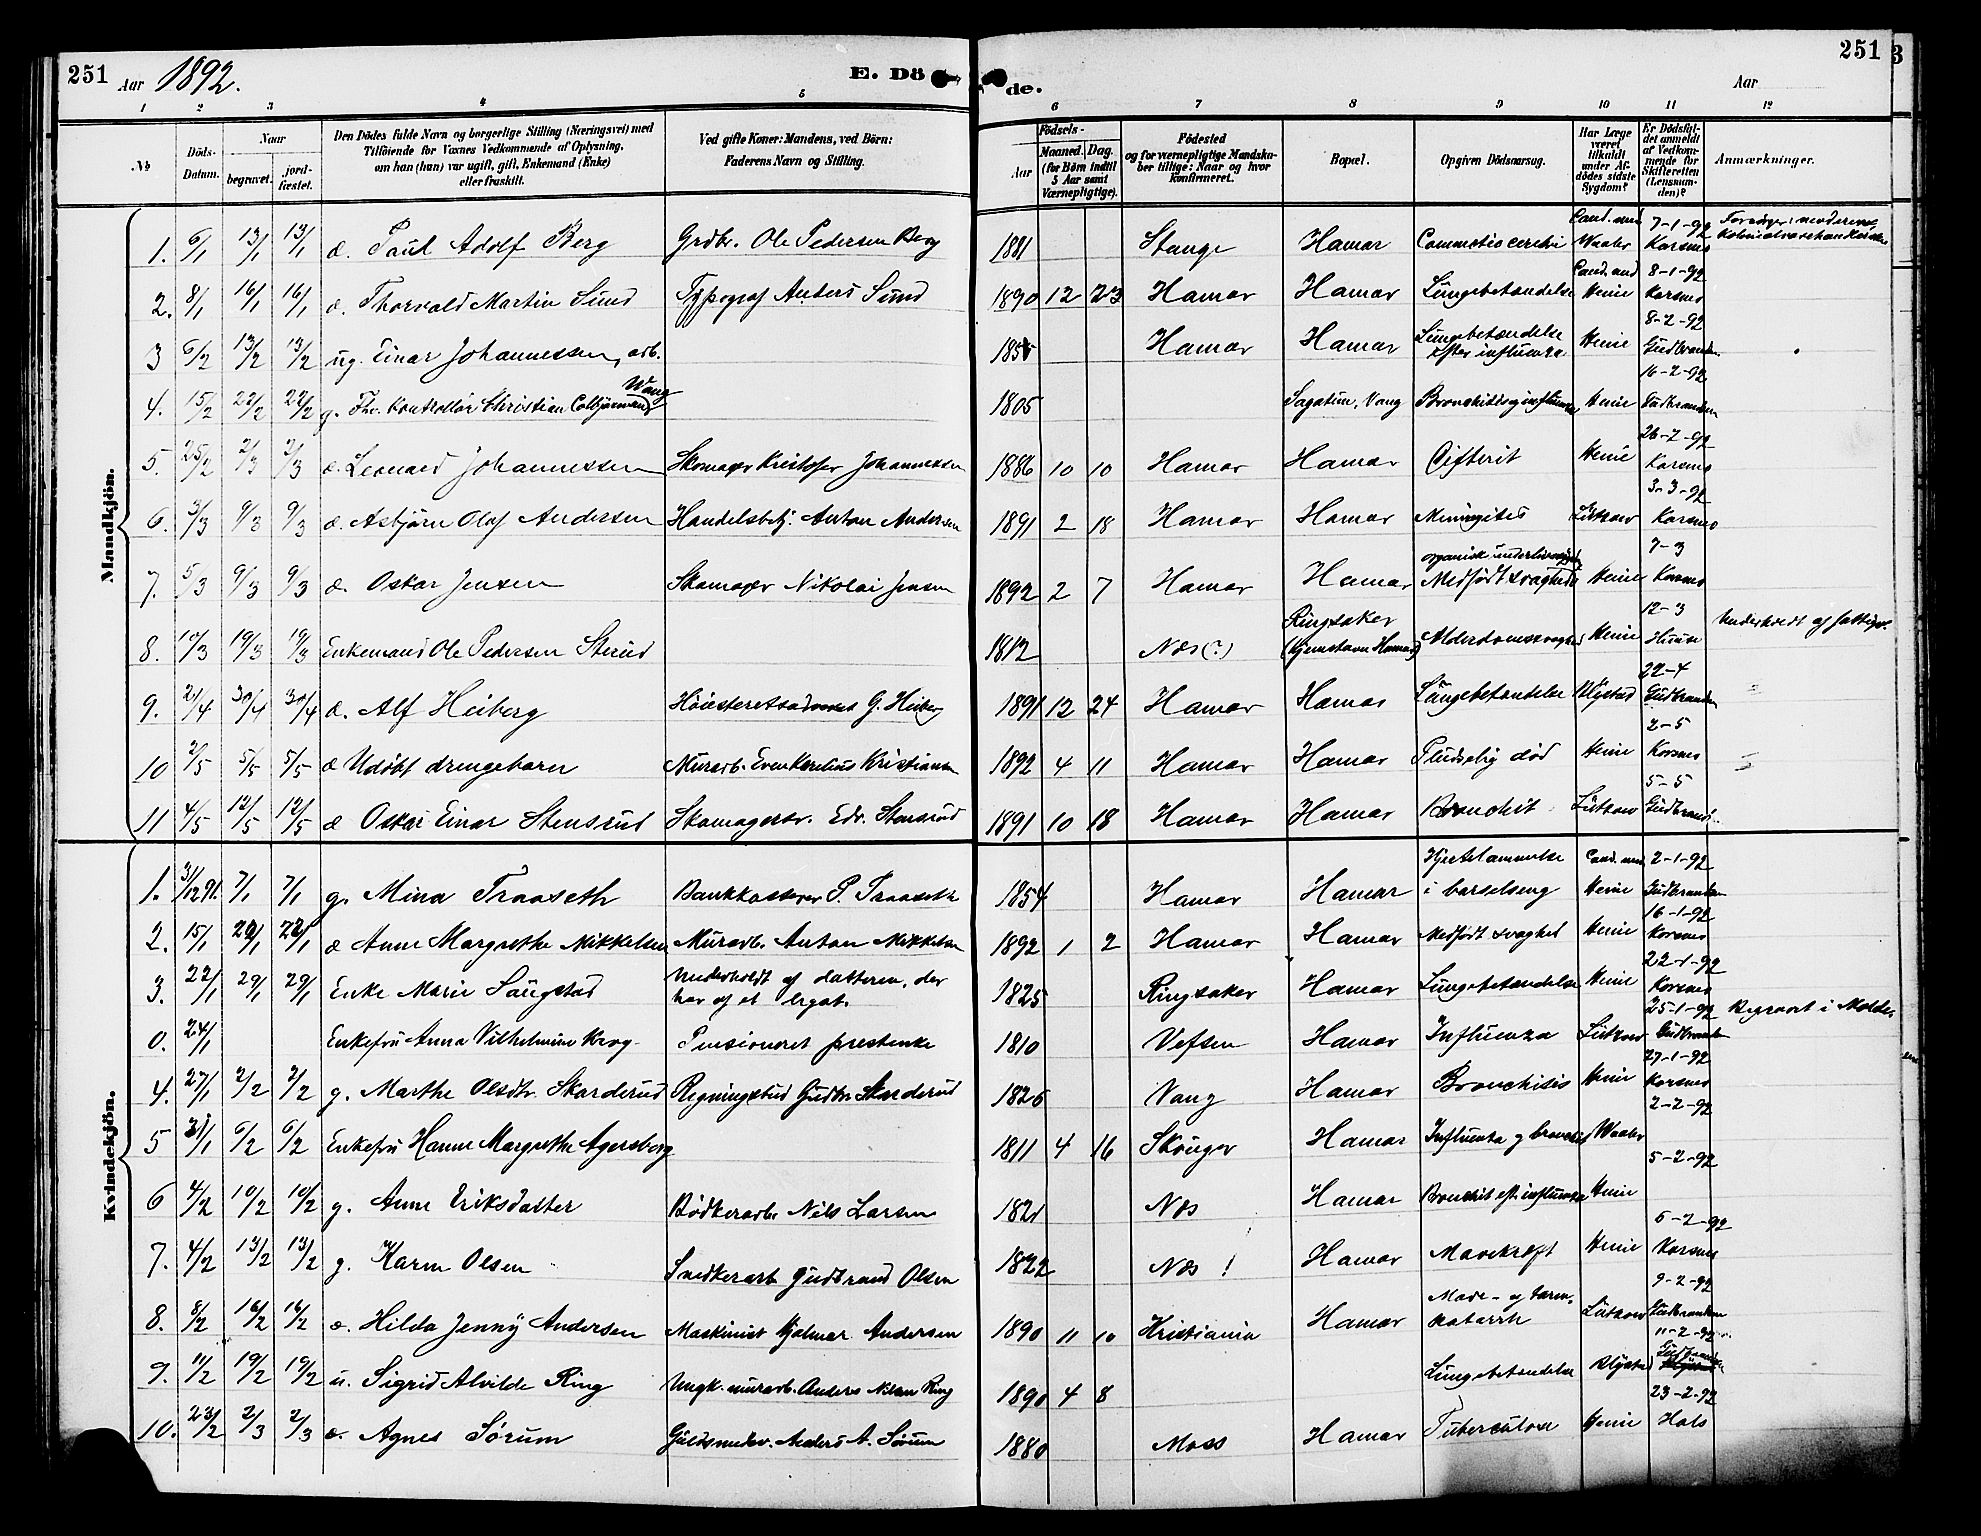 251 Aar 1892. E. Dö de. Aar 251
1 2 3 4 5 6 7 8 9 10 11 12
No Döds-Datum. Naar begravet. jord-fæstet. Den Dödes fulde Navn og borgerlige Stilling (Næringsvei) med Tilföiende for Voxnes Vedkommende af Oplysning, om han (hun) var ugift, gift, Enkemand (Enke) eller fraskilt. Ved gifte Koner: Mandens, ved Börn: Faderens Navn og Stilling. Födsels- Aar Maaned. Dag. (for Børn indtil 5 Aar samt Værnepligtige). Födested og for værnepligtige Mandskaber tillige: Naar og hvor konfirmeret. Bopæl. Opgiven Dödsaarsag. Har Læge været tilkaldt under Afdödes sidste Sygdom? Er Dödsfaldet anmeldt af Vedkommende for Skifteretten (Lensmanden)? Anmærkninger.
Mandkjön.
1. 6/1 13/1 13/1 æ. Paul Adolf Berg Grdbr. Ole Pedersen Berg 1881 Stange Hamar Commotio cerebri Cand. med Waaler 7-1-92 Korsmo
2. 8/1 16/1 16/1 æ. Thorvald Martin Sund Typograf Anders Sund 1890 12 23 Hamar Hamar Lungebetændelse Cand. med Heine 8-1-92 Korsmo
3 6/2 13/2 13/2 ug. Einar Johannessen, arb. Hamar Hamar Lungebetændelse efter influenza. Heine 8-2-92 Gudbrandsen
4. 15/2 22/2 22/2 g. Fhv. Kontrollör Christian Colbjörnsen Wang 1805 Sagatun, Vang Bronchitis og influenza Heine 16-2-92 Gudbrandsen
5. 25/2 2/3 2/3 æ. Leonard Johannessen Skomager Kristofer Johannessen 1886 10 10 Hamar Hamar Difterit Heine 26-2-92 Korsmo
6. 3/3 9/3 9/3 æ. Asbjörn Olaf Andersen Handelsbetj. Anton Andersen 1891 2 18 Hamar Hamar Meningites Lützow 3-3-92 Korsmo
7. 5/3 9/3 9/3 æ. Oskar Jensen Skomager Nikolai Jensen 1892 2 7 Hamar Hamar Medfödt svaghed Heine 7-3 Korsmo
8. 10/3 19/3 19/3 Enkemand Ole Pedersen Sterud 1812 Næs (?) Ringsaker (hjemstavn Hamar) Alderdomssvaghed Heine 12-3 Underholdt af fattigv.
9. 21/4 30/4 30/4 æ. Alf Heiberg Höiesteretsadvokat G. Heiberg 1891 12 24 Hamar Hamar Lungebetændelse Blystad 22-4 Gudbrandsen
10 2/5 5/5 5/5 æ Udöbt drengebarn Murarb. Even Kornelius Kristiansen 1892 4 11 Hamar Hamar Pludselig död Heine 2-5 Korsmo
11 4/5 12/5 12/5 æ Oskar Einar Stensrud Skomagersv. Edv. Stensrud 1891 10 18 Hamar Hamar Bronchit Lützow 5-5 Gudbrands.
Kvindekjön.
1. 31/12 91. 7/1 7/1 g. Mina Traaseth Bankkasserer P. Traaseth 1854 Hamar Hamar Hjertelammelse i barselseng Cand. med. Heine 2-1-92 Gudbrandsen
2. 15/1 22/1 22/1 æ Anne Margrethe Mikkelsen Murarb. Anton Mikkelsen 1892 1 2 Hamar Hamar Medfödt svaghet Heine 16-1-92 Korsmo
3. 22/1 29/1 29/1 Enke Marie Saugstad Underholdt af datteren, der har af et legat. 1825 Ringsaker Hamar Lungebetændelse Heine 22-1-92 Korsmo
0. 24/1 Enkefru Anna Vilhelmine Krog Pensioneret prestenke 1810 Vefsen Hamar Influenza Lützow 25-1-92 Gudbrandsen Begravet i Molde
4. 27/1 2/2 2/2 g. Marthe Olsdtr. Skarderud Bygningstud Gudbr. Skarderud 1826 Vang Hamar Bronchitis Heine 27-1-92 Korsmo
5 31/1 6/2 6/2 Enkefru Hanne Margrethe Agersborg 1811 4 16 Skouger Hamar Influenza og bronchit Waaler 2-2-92
6 4/2 10/2 10/2 g. Anne Eriksdatter Bödkerarb. Nils Larsen 1821 Næs Hamar Bronchit eft. influenza Heine 5-2-92
7. 4/2 13/2 13/2 g. Karen Olsen Snedkerarb. Gudbrand Olsen 1822 Næs ! Hamar Mavekræft Heine 6-2-92 Korsmo
8. 8/2 16/2 16/2 æ. Hilda Jenny Andersen Maskinist Hjalmar Andersen 1890 11 10 Kristiania Hamar Mave- og tarmkatarrh Lützow 9-2-92 Gudbrandsen
9. 11/2 19/2 19/2 u. Sigrid Alvilde Ring Ungk. murarb. Anders Nilsen Ring 1890 4 8 Lungebetændelse Blystad 11-2-92 Gudbrandsen
10. 23/2 2/3 2/3 æ. Agnes Sörum Guldsmedsv. Anders A. Sörum 1880 Moss Hamar Tuberculose Heine 23-2-92 Hals